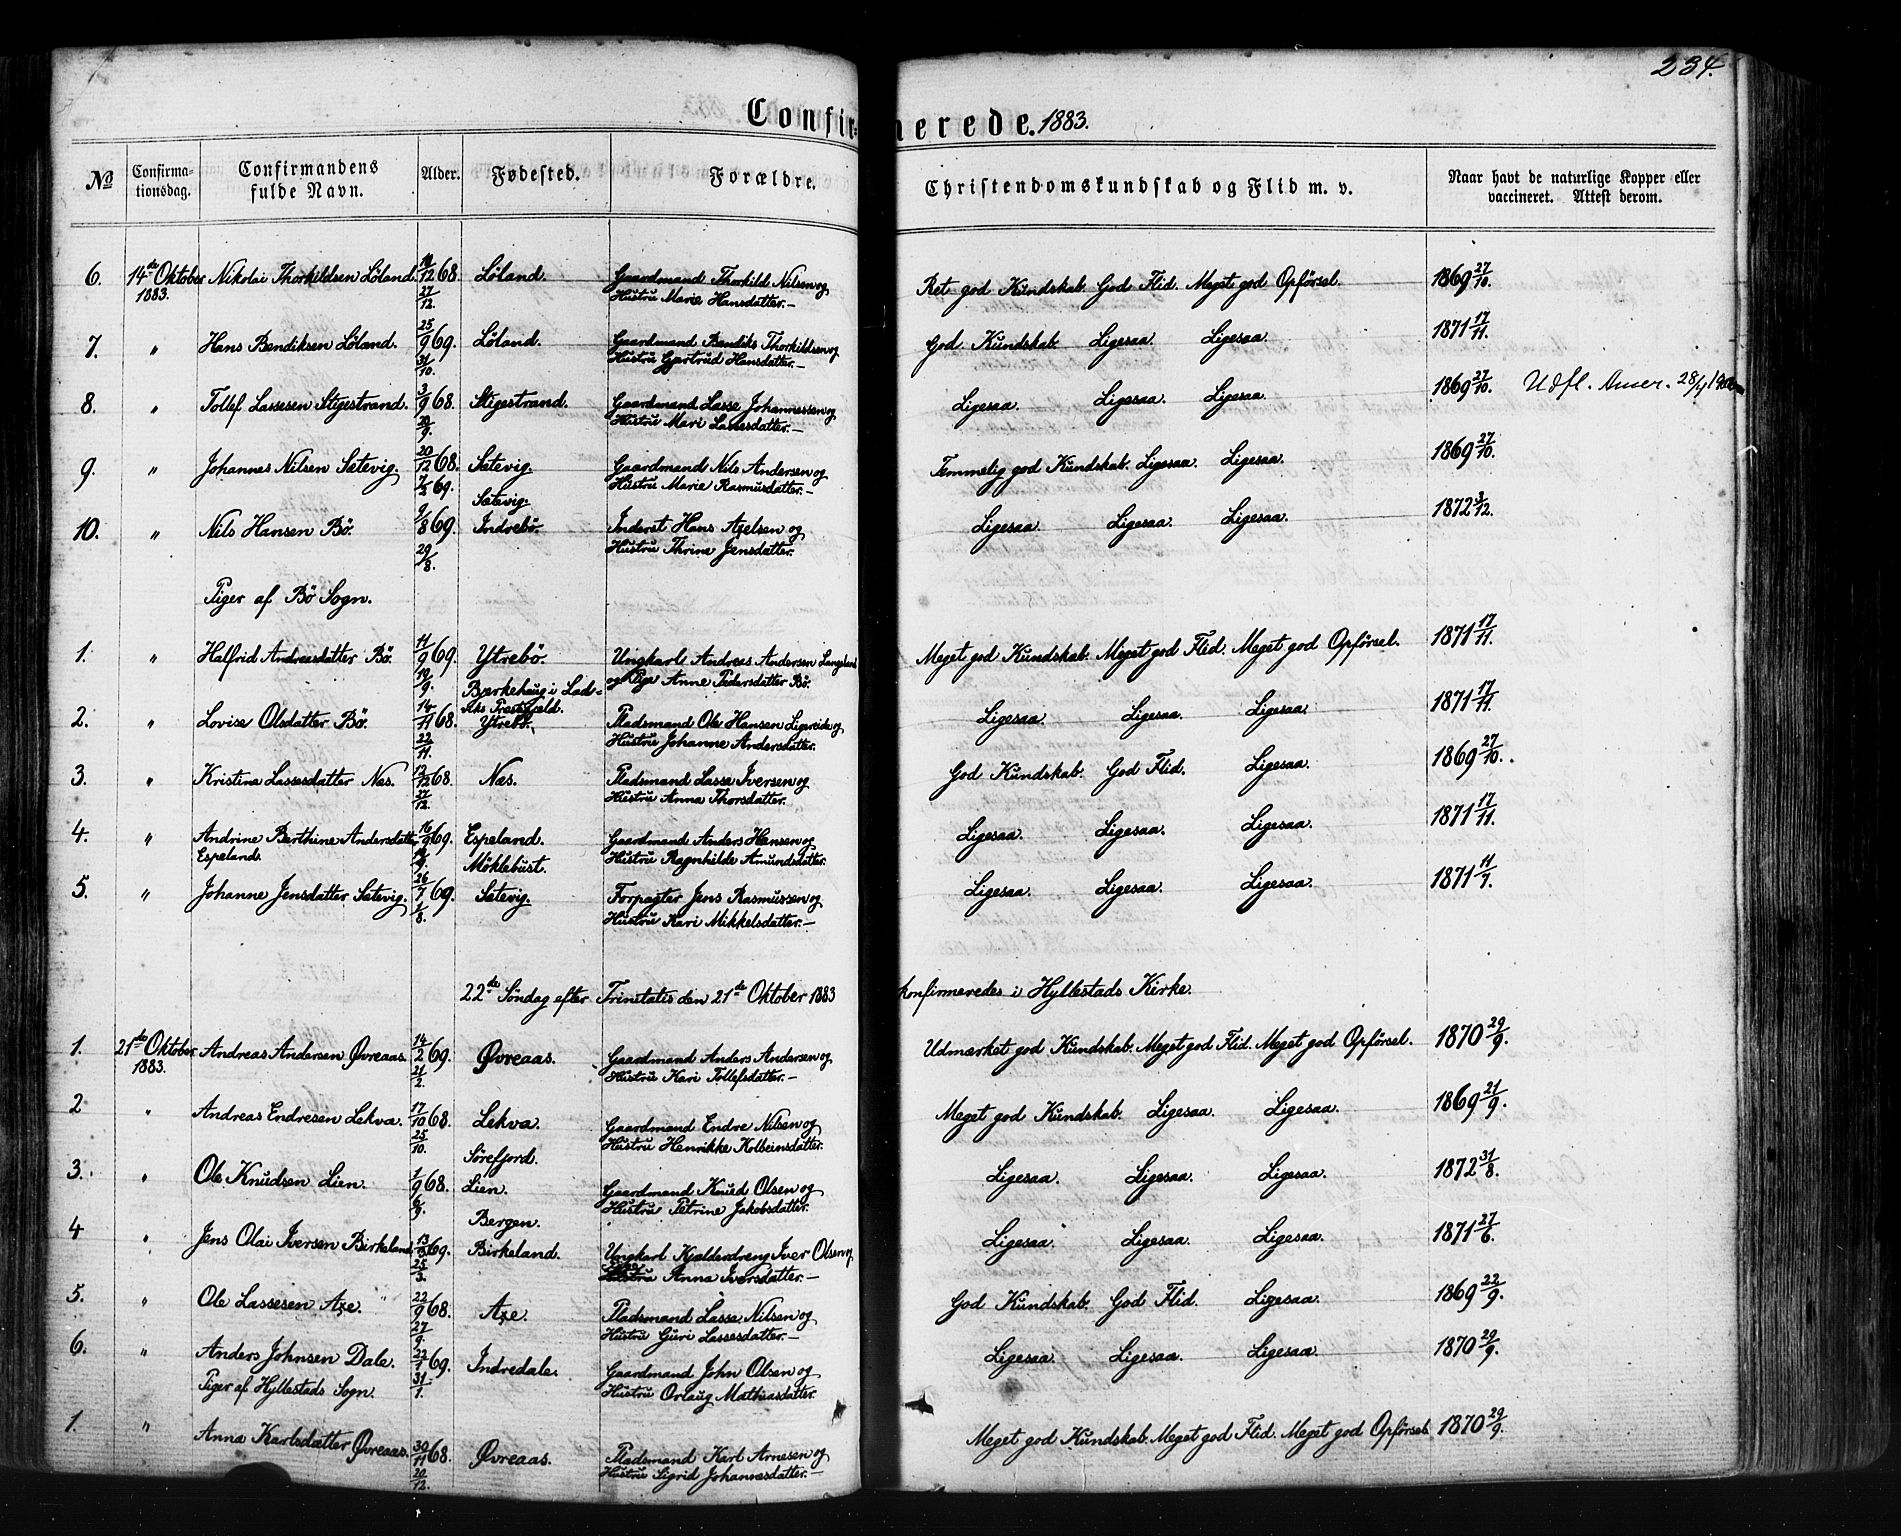 234.
Confirmerede. 1883.
No
Confirma-
tionsdag.
Confirmandens
fulde Navn.
Alder.
Fødested.
Forældre.
Christendomskundskab og Flid m. v.
Naar havt de naturlige Kopper eller
vaccineret. Attest derom.
6. 14de Oktober Nikolai Thorkildsen Löland. 12 68 Löland. Gaardmand Thorkild Nilsen og Ret god Kundskab. God Flid. Meget god Opförsel. 1869 27/10.
1883. 27/12. Hustru Marie Hansdatter.—
7. " Hans Bendiksen Löland. 25/9 69. Löland. Gaardmand Bendiks Thorkildsen og God Kundskab. Ligesaa. Ligesaa. 1871 17/11.
31/10. Hustru Gjertrud Hansdatter.—
8. " Tollef Lassesen Stigestrand. 3/9 68. Stigestrand. Gaardmand Lasse Johannessen og Ligesaa. Ligesaa. Ligesaa. 1869 27/10. Udfl. Amer. 28/4
20/9. Hustru Mari Lassesdatter.—
9. " Johannes Nilsen Sætevig. 20/12 68. Sætevig. Gaardmand Nils Andersen og Temmelig god Kundskab. Ligesaa. Ligesaa. 1869 27/10.
7/2 69. Hustru Marie Rasmusdatter.—
Sætevig.
10. " Nils Hansen Bö. 9/8 69. Indrebö. Inderst Hans Axelsen og Ligesaa. Ligesaa. Ligesaa. 1872 3/12.
29/8. Hustru Thrine Jensdatter.
Piger af Bö Sogn.
1. " Halfrid Andreasdatter Bö. 11/9 69. Ytrebö. Ungkarl Andreas Andersen Langeland Meget god Kundskab. Meget god Flid. Meget god Opförsel. 1871 17/11.
19/9. og Pige Anne Pedersdatter Bö.
Barkehaug i Lad-
viks Prestegjeld.
2. " Lovise Olsdatter Bö. 14/11 68. Ytrebö. Pladsmand Ole Hansen Ligereide og Ligesaa. Ligesaa. Ligesaa. 1871 17/11.
22/11. Hustru Johanne Andersdatter.
3. " Kristina Lassesdatter Næs. 12/12 68. Næs. Pladsmand Lasse Iversen og God Kundskab. God Flid. Ligesaa. 1869 27/10.
27/12. Hustru Anna Thorsdatter.
4. " Andrine Berthine Andersdatter 16/9 69. Espeland. Gaardmand Anders Hansen og Ligesaa. Ligesaa. Ligesaa. 1871 17/11.
Espeland. Hustru Ragnhilde Amundsdatter.
Möklebust.
5. " Johanne Jensdatter Sætevig. 26/7 69. Sætevig. Forpagter Jens Rasmussen og Ligesaa. Ligesaa. Ligesaa. 1871 11/7.
1/8. Hustru Kari Mikkelsdatter.—
22de Söndag efter Trinitatis den 21de Oktober 1883 konfirmeredes i Hyllestads Kirke.
1. 21de Oktober Andreas Andersen Øvreaas. 14/2 69. Øvreaas. Gaardmand Anders Andersen og Udmærket god Kundskab. Meget god Flid. Meget god Opförsel. 1870 29/9.
1883. 21/2. Hustru Kari Tollefsdatter.—
2 " Andreas Endresen Lekva. 17/10 68. Lekva. Gaardmand Endre Nilsen og Meget god Kundskab. Ligesaa. Ligesaa. 1869 21/9.
25/10. Hustru Henrikke Kolbeinsdatter.
Sörefjord.
3. " Ole Knudsen Lien. 1/9 68. Lien. Gaardmand Knud Olsen og Ligesaa. Ligesaa. Ligesaa. 1872 31/8.
6/9. Hustru Petrine Jakobsdatter.
Bergen.
4 " Jens Olai Iversen Birkeland 13/3 69. Birkeland. Ungkarl Kjælderdreng Iver Olsen og Ligesaa. Ligesaa. Ligesaa. 1871 27/6.
25/3. Hustru Anna Iversdatter.—
5. " Ole Lassesen Axe. 22/9 68. Axe. Pladsmand Lasse Nilsen og God Kundskab. God Flid. Ligesaa. 1869 22/9.
27/9. Hustru Guri Lassesdatter.—
6. " Anders Johnsen Dale. 22/1 69. Indredale. Gaardmand John Olsen og Ligesaa. Ligesaa. Ligesaa. 1870 29/9.
31/1. Hustru Orlaug Mathiasdatter.
Piger af Hyllestads Sogn.
1. " Anna Karlsdatter Øvreaas. 30/11 68. Øvreaas. Pladsmand Karl Arnesen og Meget god Kundskab. Meget god Flid. Meget god Opförsel. 1870 29/9.
20/12. Hustru Sigrid Johannesdatter.—